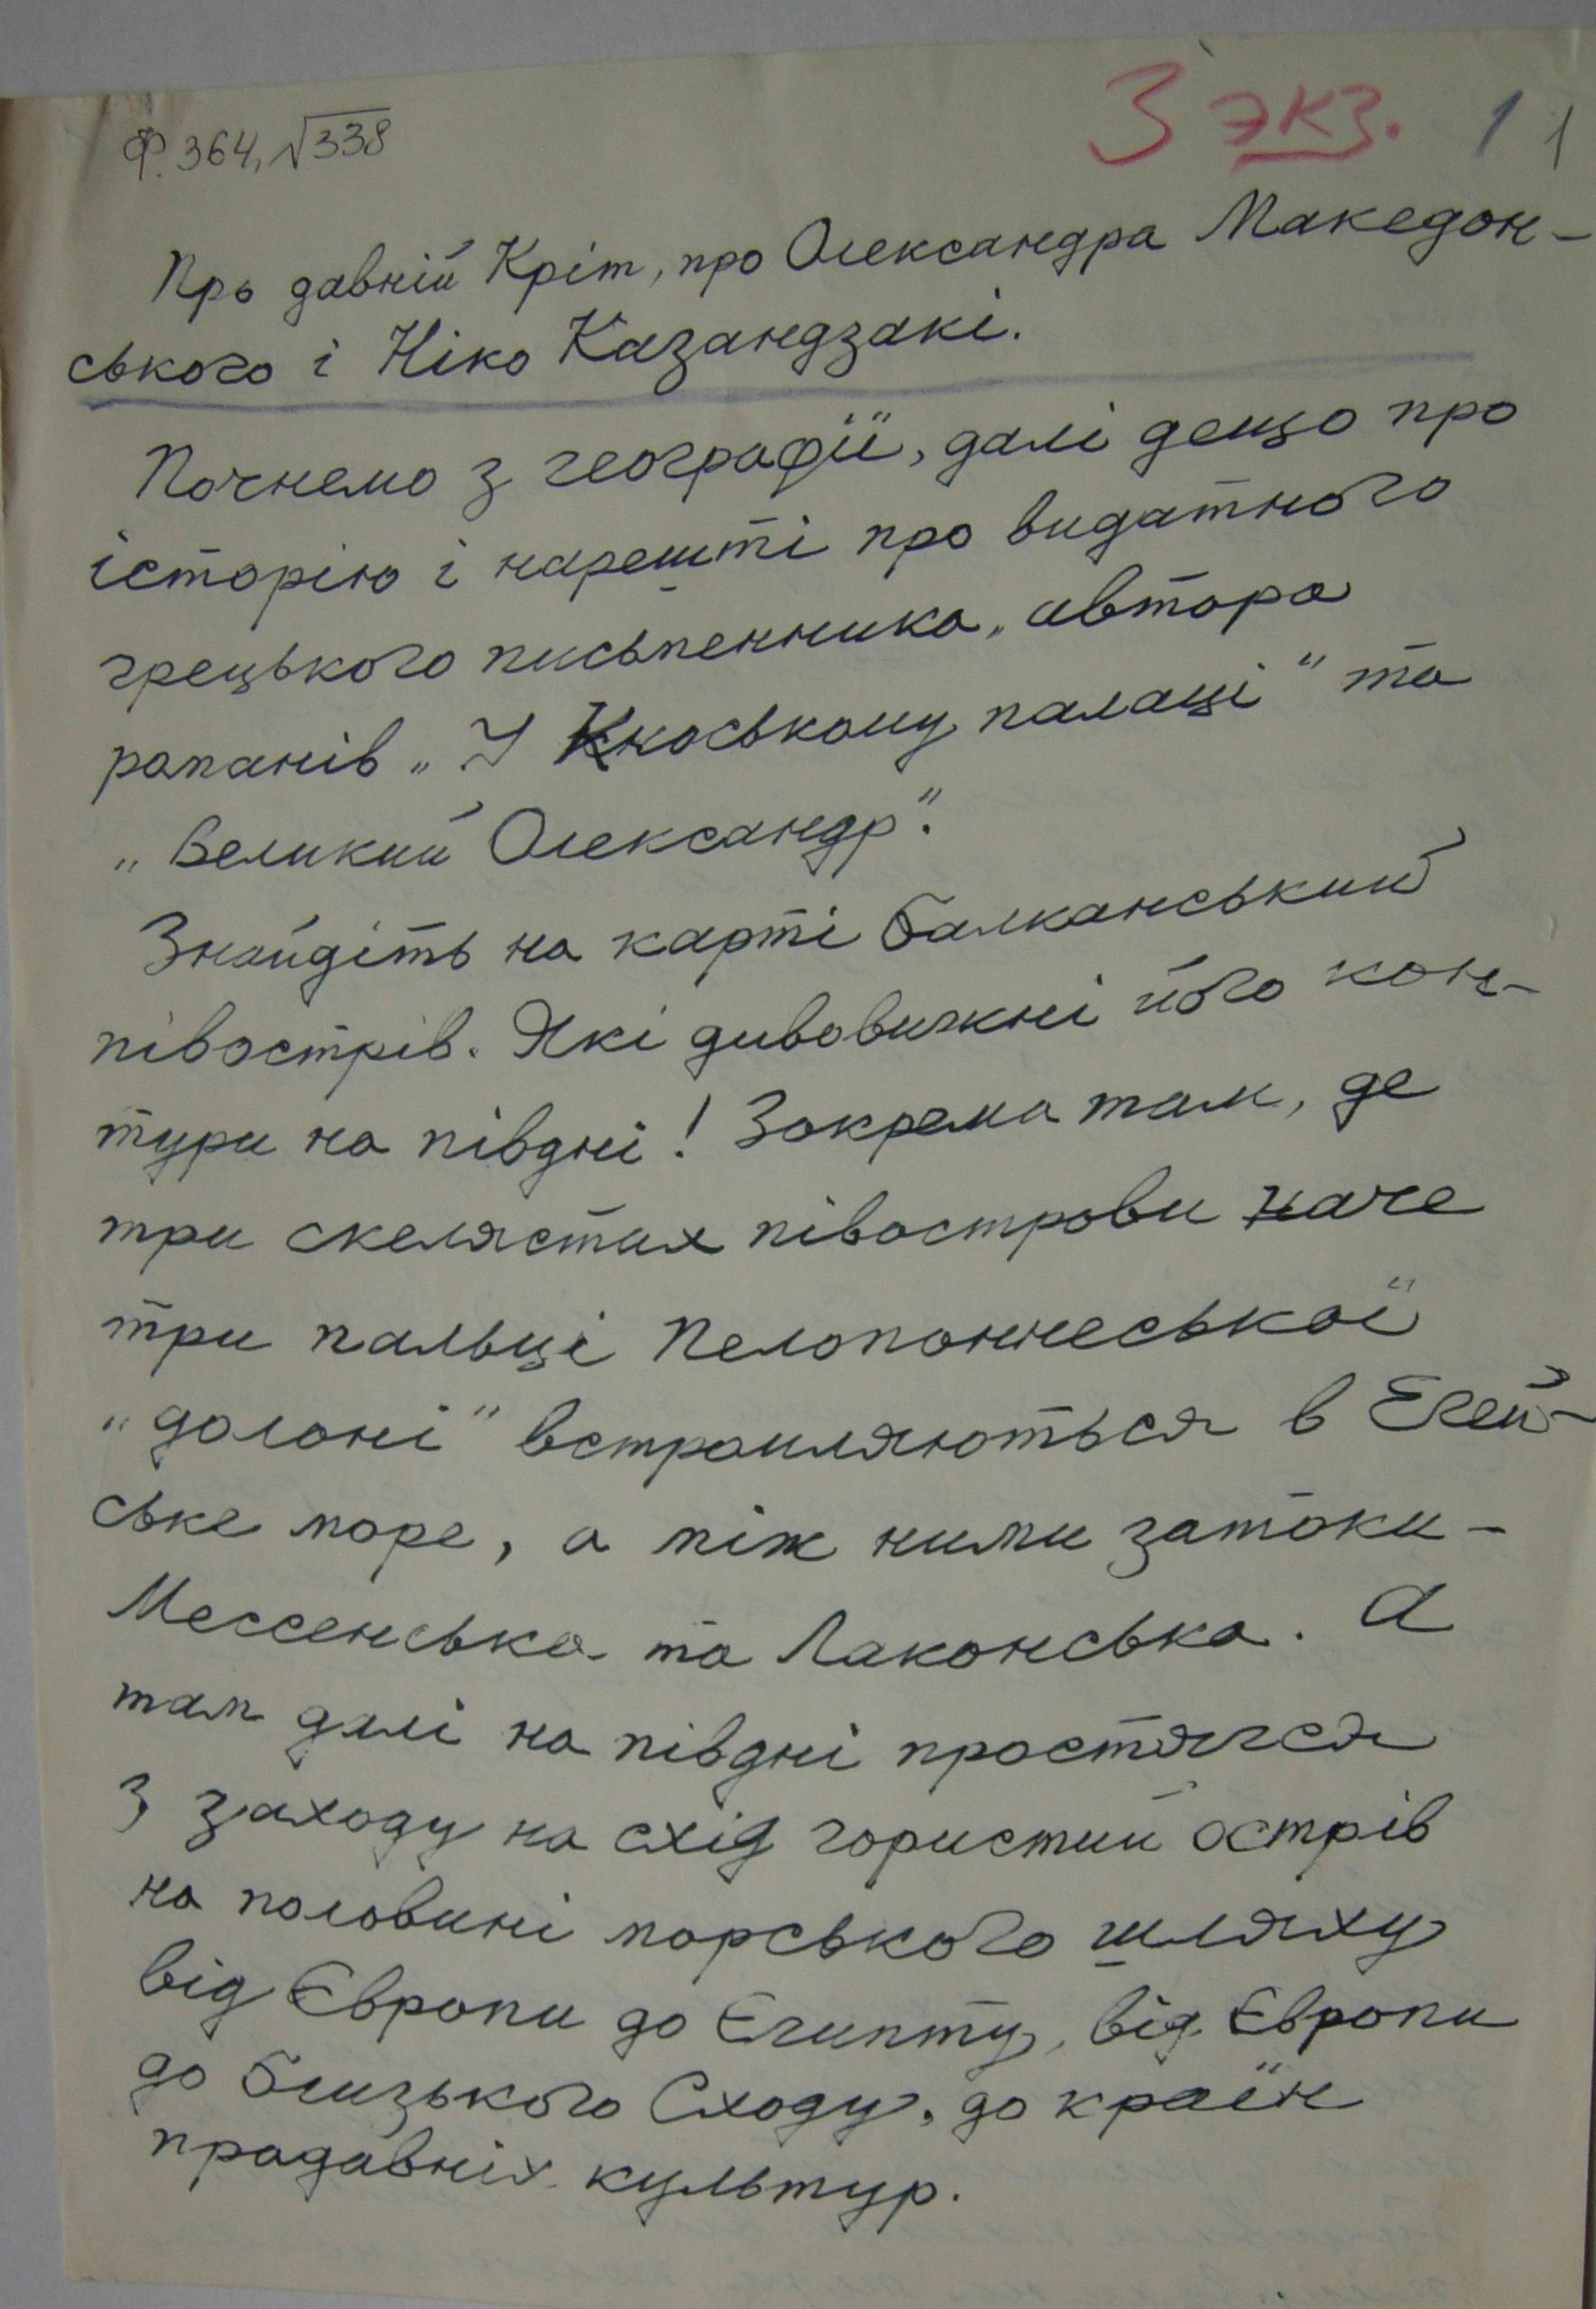 Ф. 364, √338
3 экз. 1 1
Про давній Кріт, про Олександра Македон-
ського і Ніко Казандзакі.
Почнемо з географії, далі дещо про
історію і нарешті про видатного
грецького письменника, автора
романів „У Кноському палаці" та
„Великий Олександр".
Знайдіть на карті Балканський
півострів. Які дивовижні його кон-
тури на півдні! Зокрема там, де
три скелястих півострови наче
три пальці Пелопоннеської
„долоні" встромляються в Егей-
ське море, а між ними затоки -
Мессенська та Лаконська. А
там далі на півдні простягся
з заходу на схід гористий острів
на половині морського шляху
від Європи до Єгипту, від Європи
до Близького Сходу, до країн
прадавніх культур.